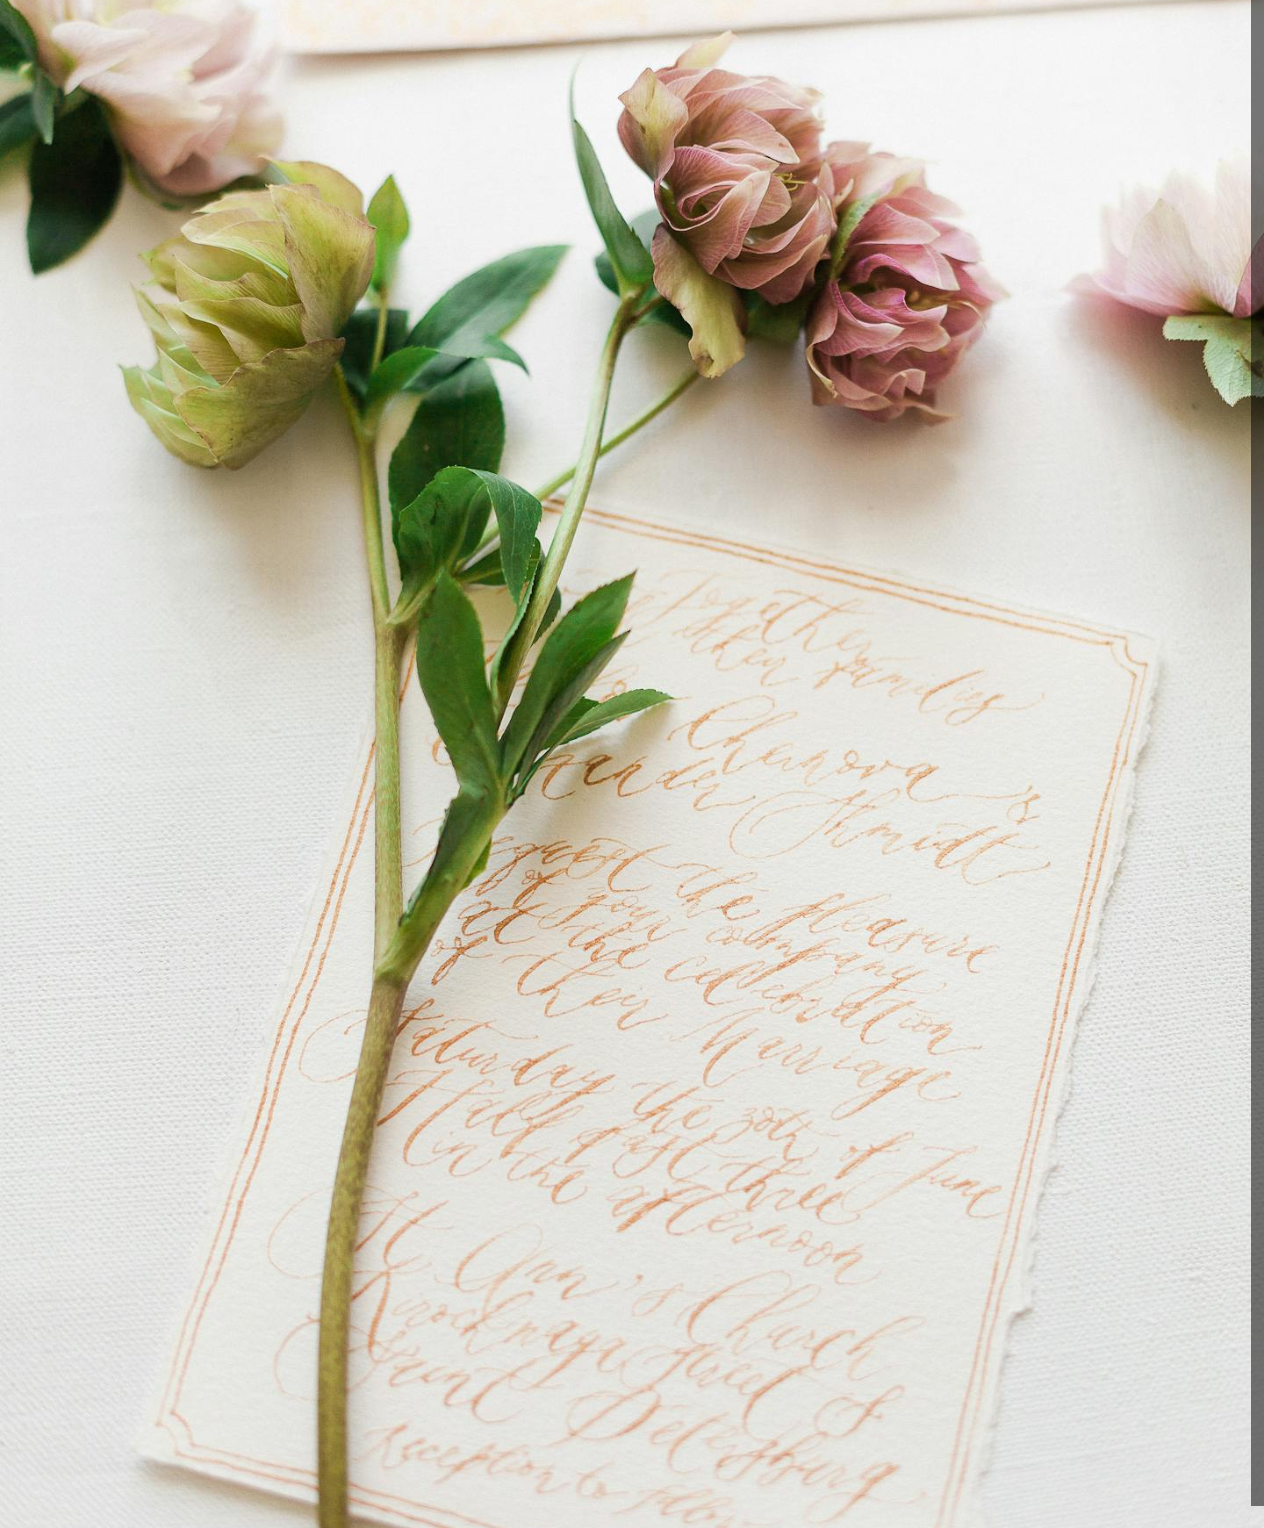 Together
their families
Chernova &
Shmidt
request the pleasure
of your company
at the cellebration
of their Marriage
Saturday the 30th of June
Half past three
in the afternoon
St Ann's Church
Street 8
Saint Petersburg
Reception to follow